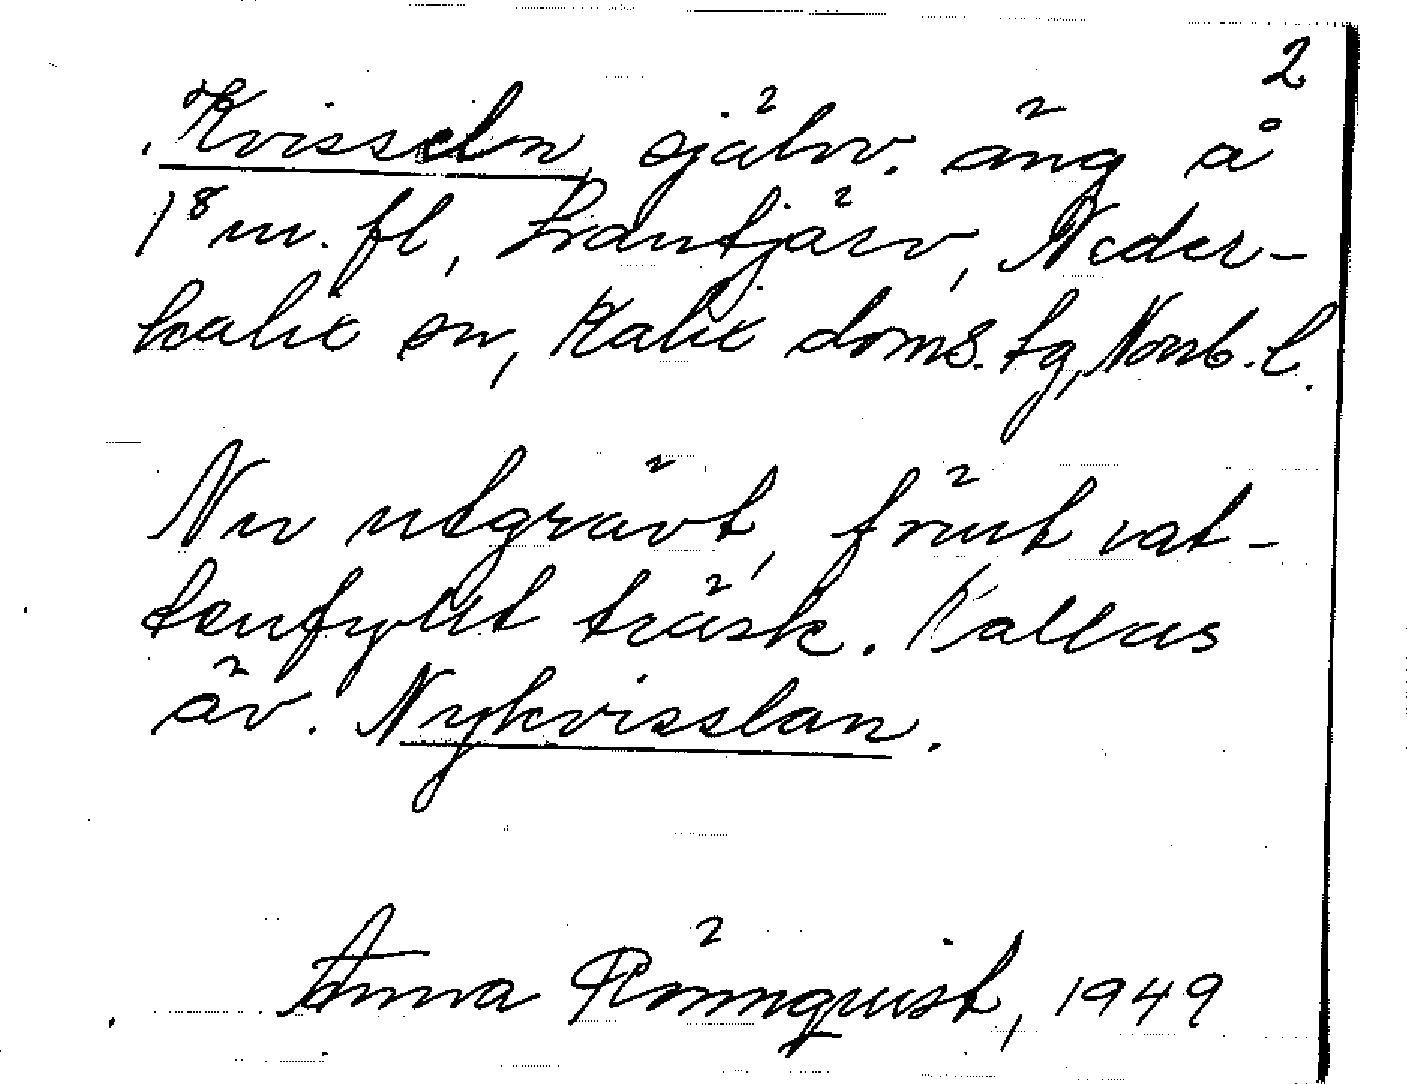 2
Kvisseln, självv. äng å
1⁸ m. fl, Lantjärv, Neder-
kalix sn, Kalix doms. tg, Norrb. l.
Nu utgrävt, förut vat-
tenfyllt träsk. Kallas
äv. Nykvisslan.
Anna Rönnquist, 1949